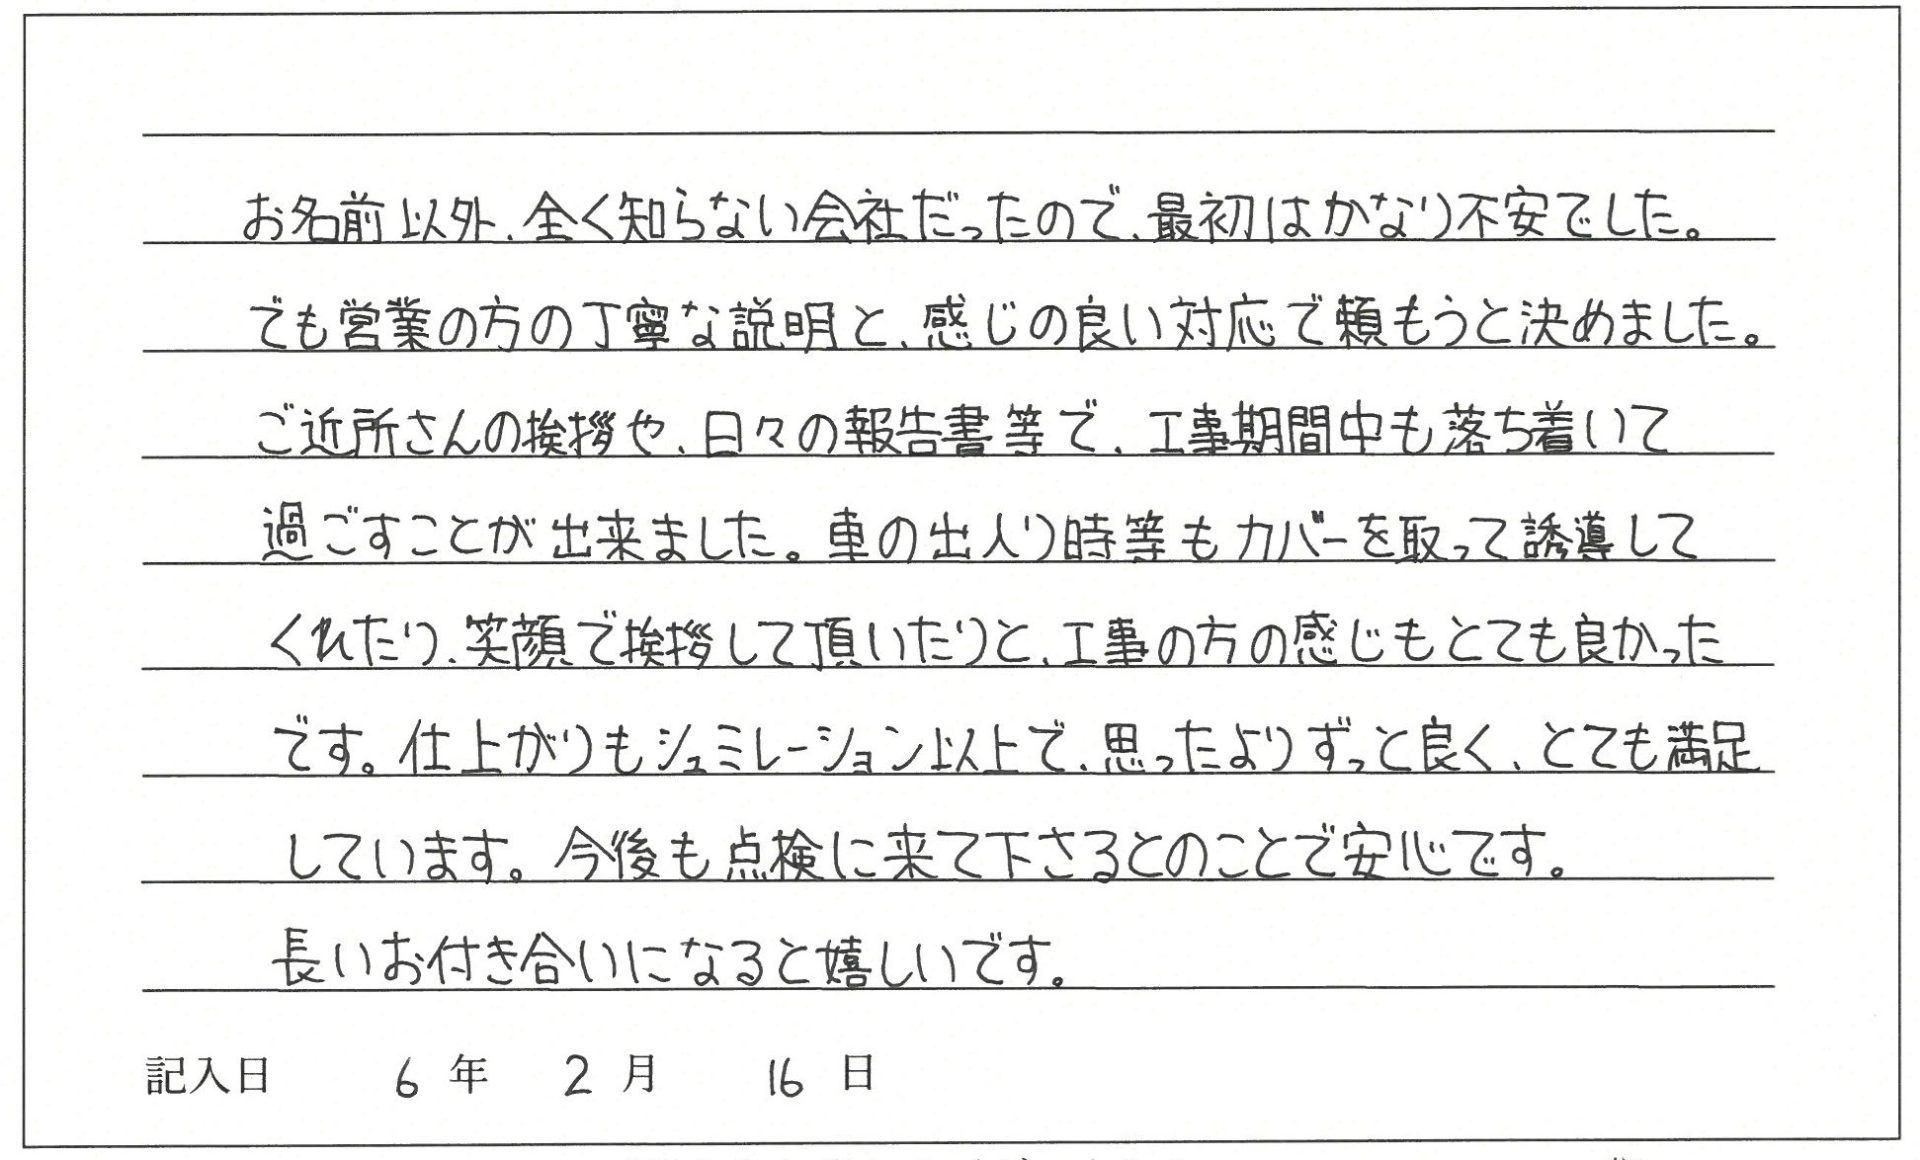 お名前以外、全く知らない会社だったので、最初はかなり不安でした。
でも営業の方の丁寧な説明と、感じの良い対応で頼もうと決めました。
ご近所さんの挨拶や、日々の報告書等で、工事期間中も落ち着いて
過ごすことが出来ました。車の出入り時等もカバーを取って誘導して
くれたり、笑顔で挨拶して頂いたりと、工事の方の感じもとても良かった
です。仕上がりもシュミレーション以上で、思ったよりずっと良く、とても満足
しています。今後も点検に来て下さるとのことで安心です。
長いお付き合いになると嬉しいです。
記入日 6 年 2 月 16 日